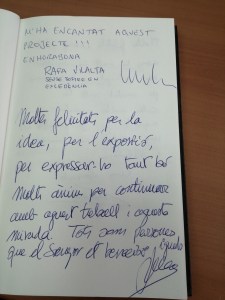 M'HA ENCANTAT AQUEST
PROJECTE !!!
ENHORABONA
RAFA VILALTA
EXCEDENCIA
Moltes felicitats, per la
idea, per l'exposició,
per expressar-ho tant bé
Molts ànims per continuar
amb aquest treball i aquesta
mirada. Tots som persones
que el